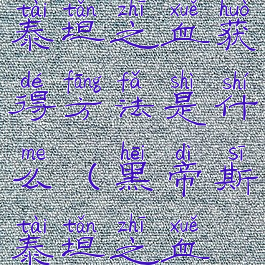 tài tǎn zhī xuě huò
泰坦之血获
dé fāng fǎ shì shí
得方法是什
me hēi dì sī
么(黑帝斯
tài tǎn zhī xuě
泰坦之血